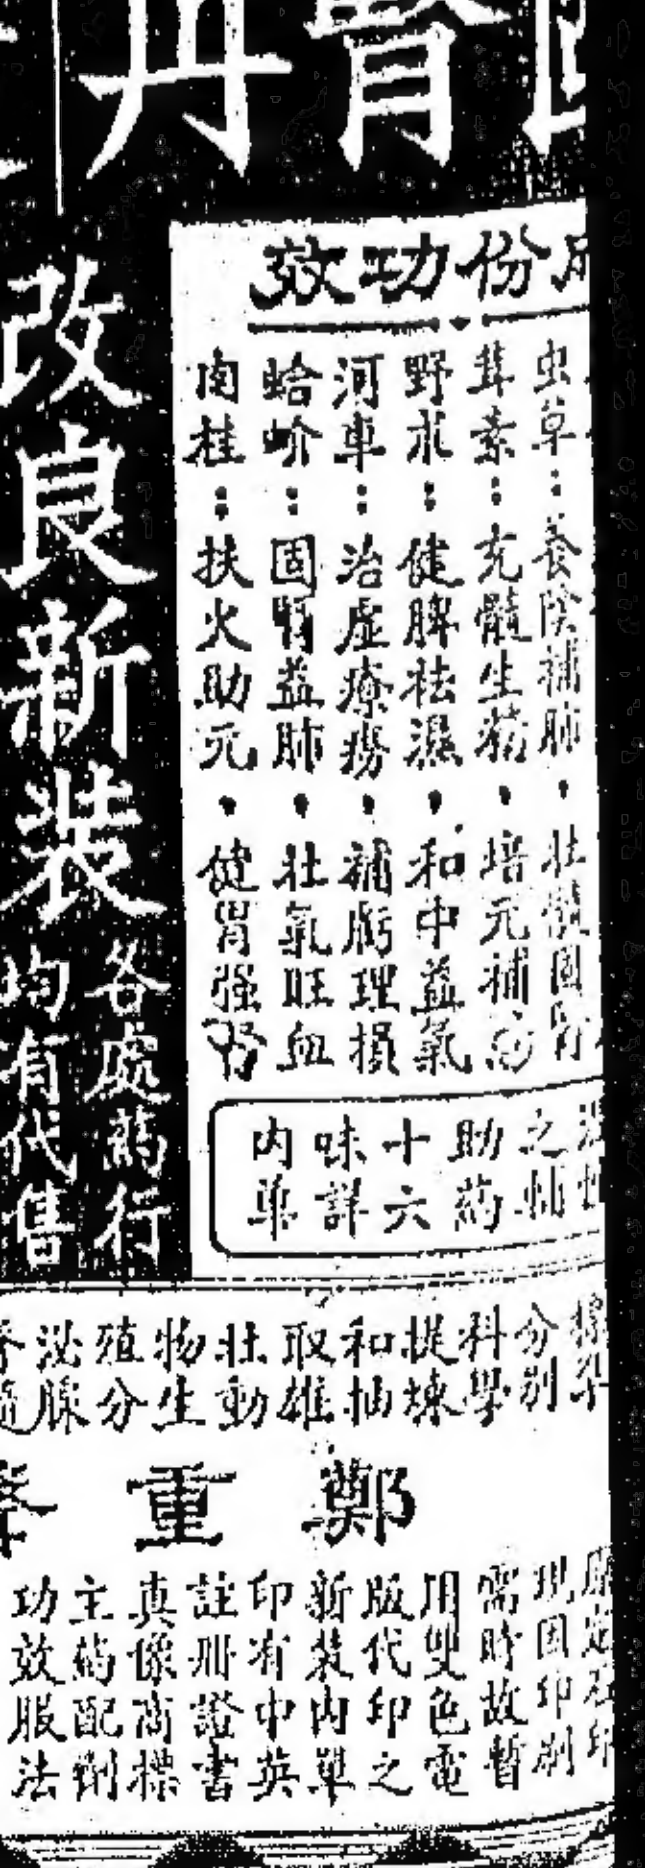 腎丹
份功效
虫草：養陰補肺・壯髓固腎
茸素：充髓生精・培元補
野朮：健脾祛濕・和中益氣
河車：治虛療癆・補虧理損
蛤蚧：固腎益肺・壯氣旺血
肉桂：扶火助元・健胃强腎
之輔
助葯
十六
味詳
內單
改良新裝
各處葯行
均有代售
分別
科學
提煉
和抽
取雄
壯動
物生
殖分
泌腺
鄭重
原定石印
現因印刷
需時故暫
用雙色電
版代印之
新裝內單
印有中英
註冊證書
真像商標
主葯配劑
功效服法